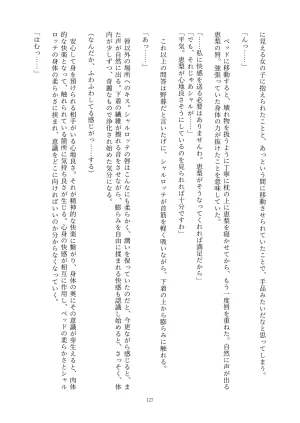 に見える女の子に抱えられたことと、あっという間に移動させられていたことで、手品みたいだなと思ってしまう。
「んっ……」
　ベッドに移動すると、壊れ物を扱うように丁寧に枕の上に恵梨を寝かせてから、もう一度唇を重ねた。自然に声が出る
恵梨の唇。強張っていた身体の力が抜けたことを意味していた。
「……私に快感を送る必要はありませんわ。恵梨がそうなってくれれば満足だから」
「でも、それじゃあシャルが……」
「平気。恵梨が心地良さそうにしているのを見られれば十分ですわ」
　これ以上の問答は野暮だと言いたげに、シャルロッテが首筋を軽く吸いながら、下着の上から膨らみに触れる。
「あっ……」
　唇以外の場所へのキス。シャルロッテの唇はこんなにも柔らかく、潤いを保っていたのだと、今更ながら認識させられ
た声が自然に出る。下着の繊維が擦れる音をさせながら、膨らみを自由に揉まれる快感も認識し始めると、さっそく、体
温が少しずつ、奇麗なもので浄化され始めた気分になる。
（なんだか、ふわふわしてる感じがっ……する）
　安心して身を預けられる相手がいる心地良さ。それが精神的な快楽に繋がり、身体の奥にその意識が芽生えると、肉体
的な快楽となって、触れられている箇所に気持ち良さが生じる。心身の快感が相互に作用し、ベッドの柔らかさとシャル
ロッテの身体の柔らかさに挟まれ、意識をどこに向ければいいのか分からなくなっていく。
「はむっ……」
127